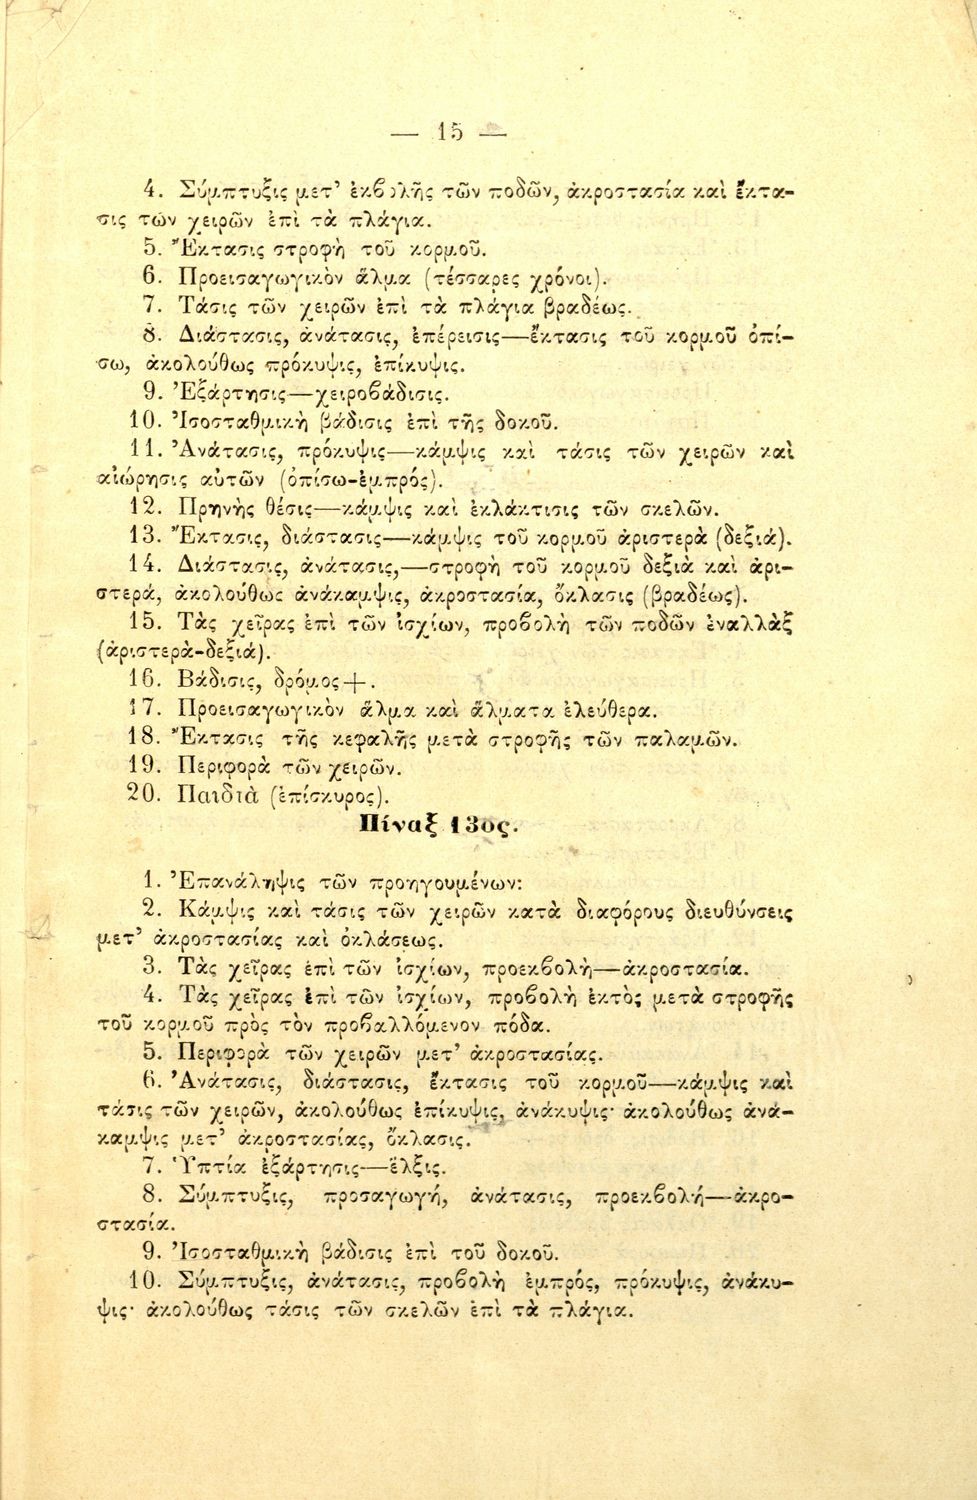 — 15 —
4. Σύμπτυξις μετ’ ἐκβολῆς τῶν ποδῶν, ἀκροστασία καὶ ἔκτα-
σις τῶν χειρῶν ἐπὶ τὰ πλάγια.
5. Ἔκτασις στροφὴ τοῦ κορμοῦ.
6. Προεισαγωγικὸν ἅλμα (τέσσαρες χρόνοι).
7. Τάσις τῶν χειρῶν ἐπὶ τὰ πλάγια βραδέως.
8. Διάστασις, ἀνάτασις, ἐπέρεισις—ἔκτασις τοῦ κορμοῦ ὀπί-
σω, ἀκολούθως πρόκυψις, ἐπίκυψις.
9. Ἐξάρτησις—χειροβάδισις.
10. Ἰσοσταθμικὴ βάδισις ἐπὶ τῆς δοκοῦ.
11. Ἀνάτασις, πρόκυψις—κάμψις καὶ τάσις τῶν χειρῶν καὶ
αἰώρησις αὐτῶν (ὀπίσω-ἐμπρός).
12. Πρηνὴς θέσις—κάμψις καὶ ἐκλάκτισις τῶν σκελῶν.
13. Ἔκτασις, διάστασις—κάμψις τοῦ κορμοῦ ἀριστερὰ (δεξιά).
14. Διάστασις, ἀνάτασις,—στροφὴ τοῦ κορμοῦ δεξιὰ καὶ ἀρι-
στερά, ἀκολούθως ἀνάκαμψις, ἀκροστασία, ὄκλασις (βραδέως).
15. Τὰς χεῖρας ἐπὶ τῶν ἰσχίων, προβολὴ τῶν ποδῶν ἐναλλὰξ
(ἀριστερὰ-δεξιά).
16. Βάδισις, δρόμος+.
17. Προεισαγωγικὸν ἅλμα καὶ ἅλματα ἐλεύθερα.
18. Ἔκτασις τῆς κεφαλῆς μετὰ στροφῆς τῶν παλαμῶν.
19. Περιφορὰ τῶν χειρῶν.
20. Παιδιὰ (ἐπίσκυρος).
Πίναξ 13ος.
1. Ἐπανάληψις τῶν προηγουμένων:
2. Κάμψις καὶ τάσις τῶν χειρῶν κατὰ διαφόρους διευθύνσεις
μετ’ ἀκροστασίας καὶ ὀκλάσεως.
3. Τὰς χεῖρας ἐπὶ τῶν ἰσχίων, προεκβολὴ—ἀκροστασία.
4. Τὰς χεῖρας ἐπὶ τῶν ἰσχίων, προβολὴ ἐκτὸς μετὰ στροφῆς
τοῦ κορμοῦ πρὸς τὸν προβαλλόμενον πόδα.
5. Περιφορὰ τῶν χειρῶν μετ’ ἀκροστασίας.
6. Ἀνάτασις, διάστασις, ἔκτασις τοῦ κορμοῦ—κάμψις καὶ
τάσις τῶν χειρῶν, ἀκολούθως ἐπίκυψις, ἀνάκυψις· ἀκολούθως ἀνά-
καμψις μετ’ ἀκροστασίας, ὄκλασις.
7. Ὑπτία ἐξάρτησις—ἕλξις.
8. Σύμπτυξις, προσαγωγή, ἀνάτασις, προεκβολή—ἀκρο-
στασία.
9. Ἰσοσταθμικὴ βάδισις ἐπὶ τοῦ δοκοῦ.
10. Σύμπτυξις, ἀνάτασις, προβολὴ ἐμπρός, πρόκυψις, ἀνάκυ-
ψις· ἀκολούθως τάσις τῶν σκελῶν ἐπὶ τὰ πλάγια.